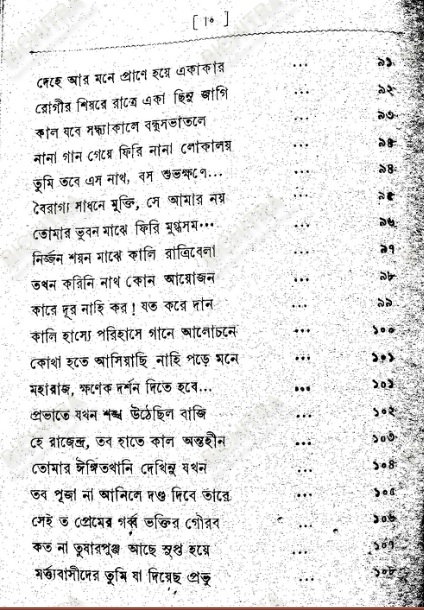 [ ।০ ]
দেহে আর মনে প্রাণে হয়ে একাকার ... ৯১
রোগীর শিয়রে রাত্রে একা ছিনু জাগি ... ৯২
কাল যবে সন্ধ্যাকালে বন্ধুসভাতলে ... ৯৩
নানা গান গেয়ে ফিরি নানা লোকালয় ... ৯৪
তুমি তবে এস নাথ, বস শুভক্ষণে... ৯৪
বৈরাগ্য সাধনে মুক্তি, সে আমার নয় ... ৯৫
তোমার ভুবন মাঝে ফিরি মুগ্ধসম... ৯৬
নির্জ্জন শয়ন মাঝে কালি রাত্রিবেলা ... ৯৭
তখন করিনি নাথ কোন আয়োজন ... ৯৮
কারে দূর নাহি কর! যত করে দান ... ৯৯
কালি হাস্যে পরিহাসে গানে আলোচনে ... ১০০
কোথা হতে আসিয়াছি নাহি পড়ে মনে ... ১০১
মহারাজ, ক্ষণেক দর্শন দিতে হবে... ... ১০১
প্রভাতে যখন শঙ্খ উঠেছিল বাজি ... ১০২
হে রাজেন্দ্র, তব হাতে কাল অন্তহীন ... ১০৩
তোমার ইঙ্গিতখানি দেখিনু যখন ... ১০৪
তব পূজা না আনিলে দণ্ড দিবে তারে ... ১০৫
সেই ত প্রেমের গর্ব্ব ভক্তির গৌরব ... ১০৬
কত না তুষারপুঞ্জ আছে সুপ্ত হয়ে ... ১০৭
মর্ত্ত্যবাসীদের তুমি যা দিয়েছ প্রভু ... ১০৮